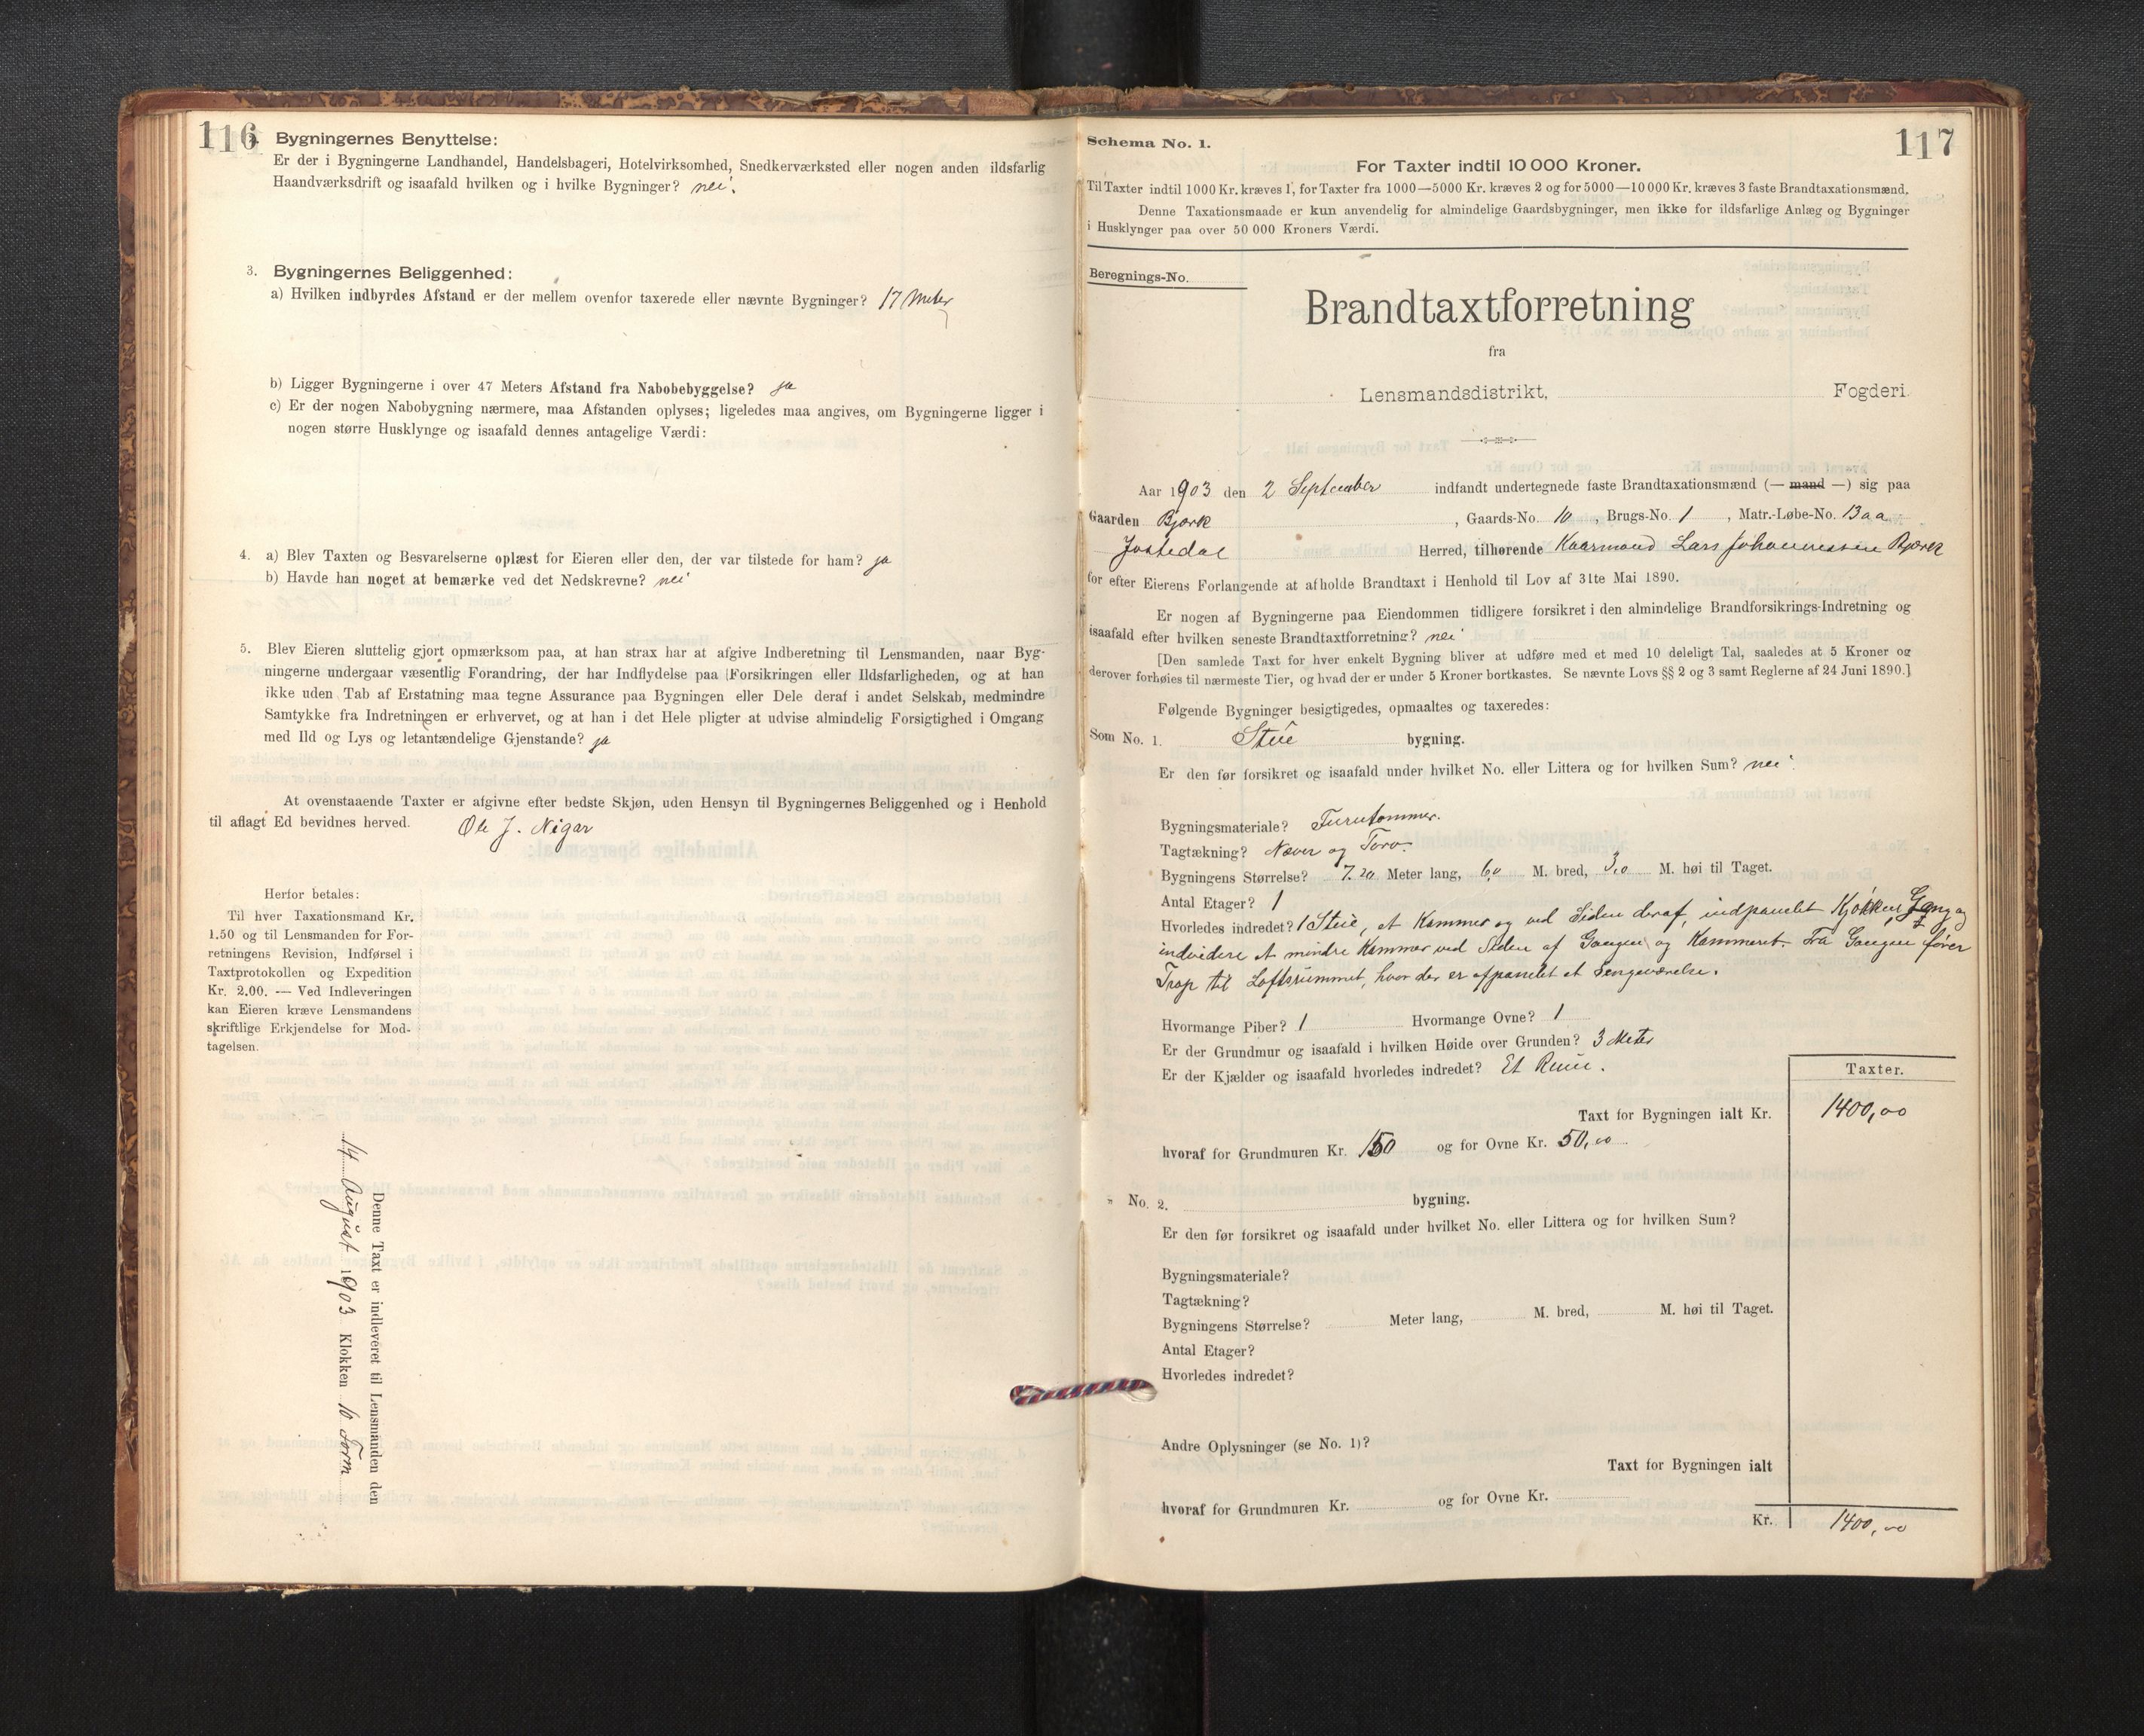 116
2. Bygningernes Benyttelse:
Er der i Bygningerne Landhandel, Handelsbageri, Hotelvirksomhed, Snedkerværksted eller nogen anden ildsfarlig
Haandværksdrift og isaafald hvilken og i hvilke Bygninger? nei.
3. Bygningernes Beliggenhed:
a) Hvilken indbyrdes Afstand er der mellem ovenfor taxerede eller nævnte Bygninger? 17 Meter
b) Ligger Bygningerne i over 47 Meters Afstand fra Nabobebyggelse? ja
c) Er der nogen Nabobygning nærmere, maa Afstanden oplyses; ligeledes maa angives, om Bygningerne ligger i
nogen større Husklynge og isaafald dennes antagelige Værdi:
4. a) Blev Taxten og Besvarelserne oplæst for Eieren eller den, der var tilstede for ham? ja
b) Havde han noget at bemærke ved det Nedskrevne? nei
5. Blev Eieren sluttelig gjort opmærksom paa, at han strax har at afgive Indberetning til Lensmanden, naar Byg-
ningerne undergaar væsentlig Forandring, der har Indflydelse paa Forsikringen eller Ildsfarligheden, og at han
ikke uden Tab af Erstatning maa tegne Assurance paa Bygningen eller Dele deraf i andet Selskab, medmindre
Samtykke fra Indretningen er erhvervet, og at han i det Hele pligter at udvise almindelig Forsigtighed i Omgang
med Ild og Lys og letantændelige Gjenstande? ja
At ovenstaaende Taxter er afgivne efter bedste Skjøn, uden Hensyn til Bygningernes Beliggenhed og i Henhold
til aflagt Ed bevidnes herved. Ole J. Nigar
Herfor betales:
Til hver Taxationsmand Kr.
1.50 og til Lensmanden for For-
retningens Revision, Indførsel i
Taxtprotokollen og Expedition
Kr. 2.00. — Ved Indleveringen
kan Eieren kræve Lensmandens
skriftlige Erkjendelse for Mod-
tagelsen.
Denne Taxt er indleveret til Lensmanden den
14 August 1903 Klokken 10 Form
117
Schema No. 1.
For Taxter indtil 10 000 Kroner.
Til Taxter indtil 1000 Kr. kræves 1, for Taxter fra 1000—5000 Kr. kræves 2 og for 5000—10 000 Kr. kræves 3 faste Brandtaxationsmænd.
Denne Taxationsmaade er kun anvendelig for almindelige Gaardsbygninger, men ikke for ildsfarlige Anlæg og Bygninger
i Husklynger paa over 50 000 Kroners Værdi.
Beregnings-No.
Brandtaxtforretning
fra
Lensmandsdistrikt, Fogderi.
Aar 1903 den 2 September indfandt undertegnede faste Brandtaxationsmænd (— mand —) sig paa
Gaarden Bjørk, Gaards-No. 10, Brugs-No. 1, Matr.-Løbe-No. 13aa
Jostedal Herred, tilhørende Kaarmand Lars Johannessen Bjørk
for efter Eierens Forlangende at afholde Brandtaxt i Henhold til Lov af 31te Mai 1890.
Er nogen af Bygningerne paa Eiendommen tidligere forsikret i den almindelige Brandforsikrings-Indretning og
isaafald efter hvilken seneste Brandtaxtforretning? nei
[Den samlede Taxt for hver enkelt Bygning bliver at udføre med et med 10 deleligt Tal, saaledes at 5 Kroner og
derover forhøies til nærmeste Tier, og hvad der er under 5 Kroner bortkastes. Se nævnte Lovs §§ 2 og 3 samt Reglerne af 24 Juni 1890.]
Følgende Bygninger besigtigedes, opmaaltes og taxeredes:
Som No. 1. Stue bygning.
Er den før forsikret og isaafald under hvilket No. eller Littera og for hvilken Sum? nei.
Bygningsmateriale? Furutømmer.
Tagtækning? Næver og Torv.
Bygningens Størrelse? 7.20 Meter lang, 6,0 M. bred, 3,0 M. høi til Taget.
Antal Etager? 1
Hvorledes indredet? 1 Stue, et Kammer og ved Siden deraf, indpanelet Kjøkken, Gang og
indvidere et mindre Kammer ved Siden af Gangen og Kammeret. Fra Gangen fører
Trap til Loftsrummet, hvor der er afpanelet et Sengeværelse.
Hvormange Piber? 1 Hvormange Ovne? 1
Er der Grundmur og isaafald i hvilken Høide over Grunden? 3 Meter
Er der Kjælder og isaafald hvorledes indredet? Et Rum.
Taxter.
Taxt for Bygningen ialt Kr. 1400,00
hvoraf for Grundmuren Kr. 150 og for Ovne Kr. 50,00
" No. 2. bygning.
Er den før forsikret og isaafald under hvilket No. eller Littera og for hvilken Sum?
Bygningsmateriale?
Tagtækning?
Bygningens Størrelse? Meter lang, M. bred, M. høi til Taget.
Antal Etager?
Hvorledes indredet?
Andre Oplysninger (se No. 1)?
Taxt for Bygningen ialt
hvoraf for Grundmuren Kr. og for Ovne Kr.
Kr. 1400,00